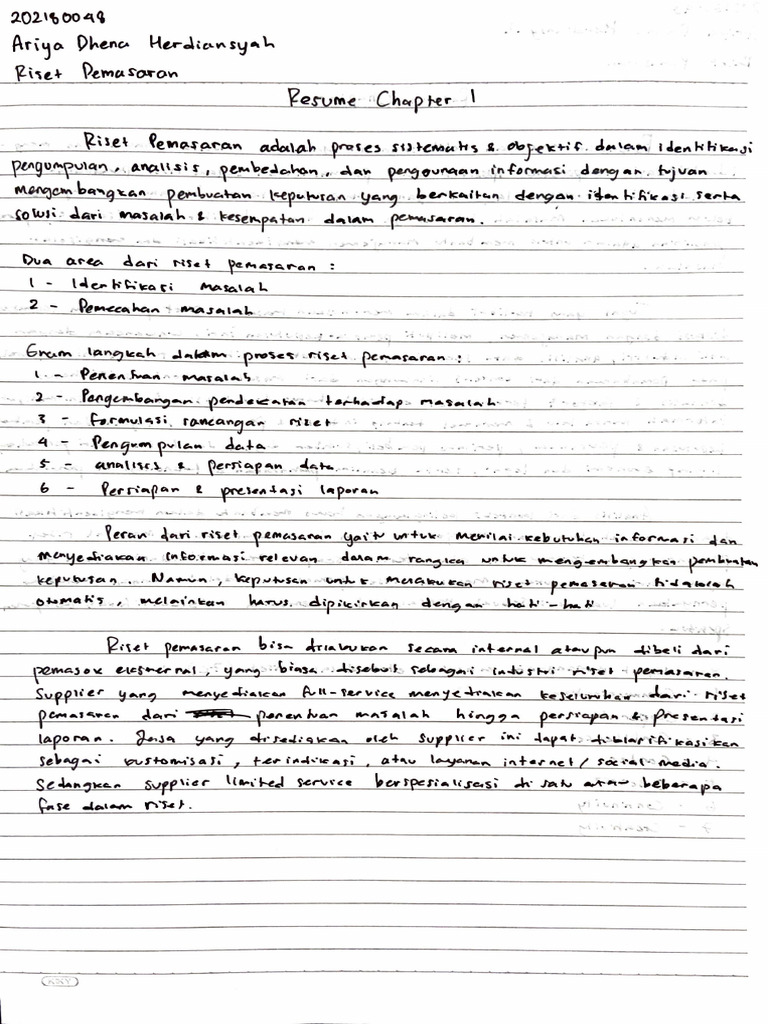 202180048
Ariya Dhena Herdiansyah
Riset Pemasaran
Resume Chapter 1
Riset Pemasaran adalah proses sistematis & objektif dalam identifikasi
pengumpulan, analisis, pembedahan, dan penggunaan informasi dengan tujuan
mengembangkan pembuatan keputusan yang berkaitan dengan identifikasi serta
solusi dari masalah & kesempatan dalam pemasaran.
Dua area dari riset pemasaran :
1 - Identifikasi masalah
2 - Pemecahan masalah
Enam langkah dalam proses riset pemasaran :
1 - Penentuan masalah
2 - Pengembangan pendekatan terhadap masalah
3 - formulasi rancangan riset
4 - Pengumpulan data
5 - analisis & persiapan data
6 - Persiapan & presentasi laporan
Peran dari riset pemasaran yaitu untuk menilai kebutuhan informasi dan
menyediakan informasi relevan dalam rangka untuk mengembangkan pembuatan
keputusan. Namun, keputusan untuk melakukan riset pemasaran tidaklah
otomatis, melainkan harus dipikirkan dengan hati-hati
Riset pemasaran bisa dilakukan secara internal ataupun dibeli dari
pemasok eksternal, yang biasa disebut sebagai industri riset pemasaran.
Supplier yang menyediakan full-service menyediakan keseluruhan dari riset
pemasaran dari penentuan masalah hingga persiapan & presentasi
laporan. Jasa yang disediakan oleh supplier ini dapat diklarifikasikan
sebagai kustomisasi, terindikasi, atau layanan internet/social media.
Sedangkan supplier limited service berspesialisasi di satu atau beberapa
fase dalam riset.